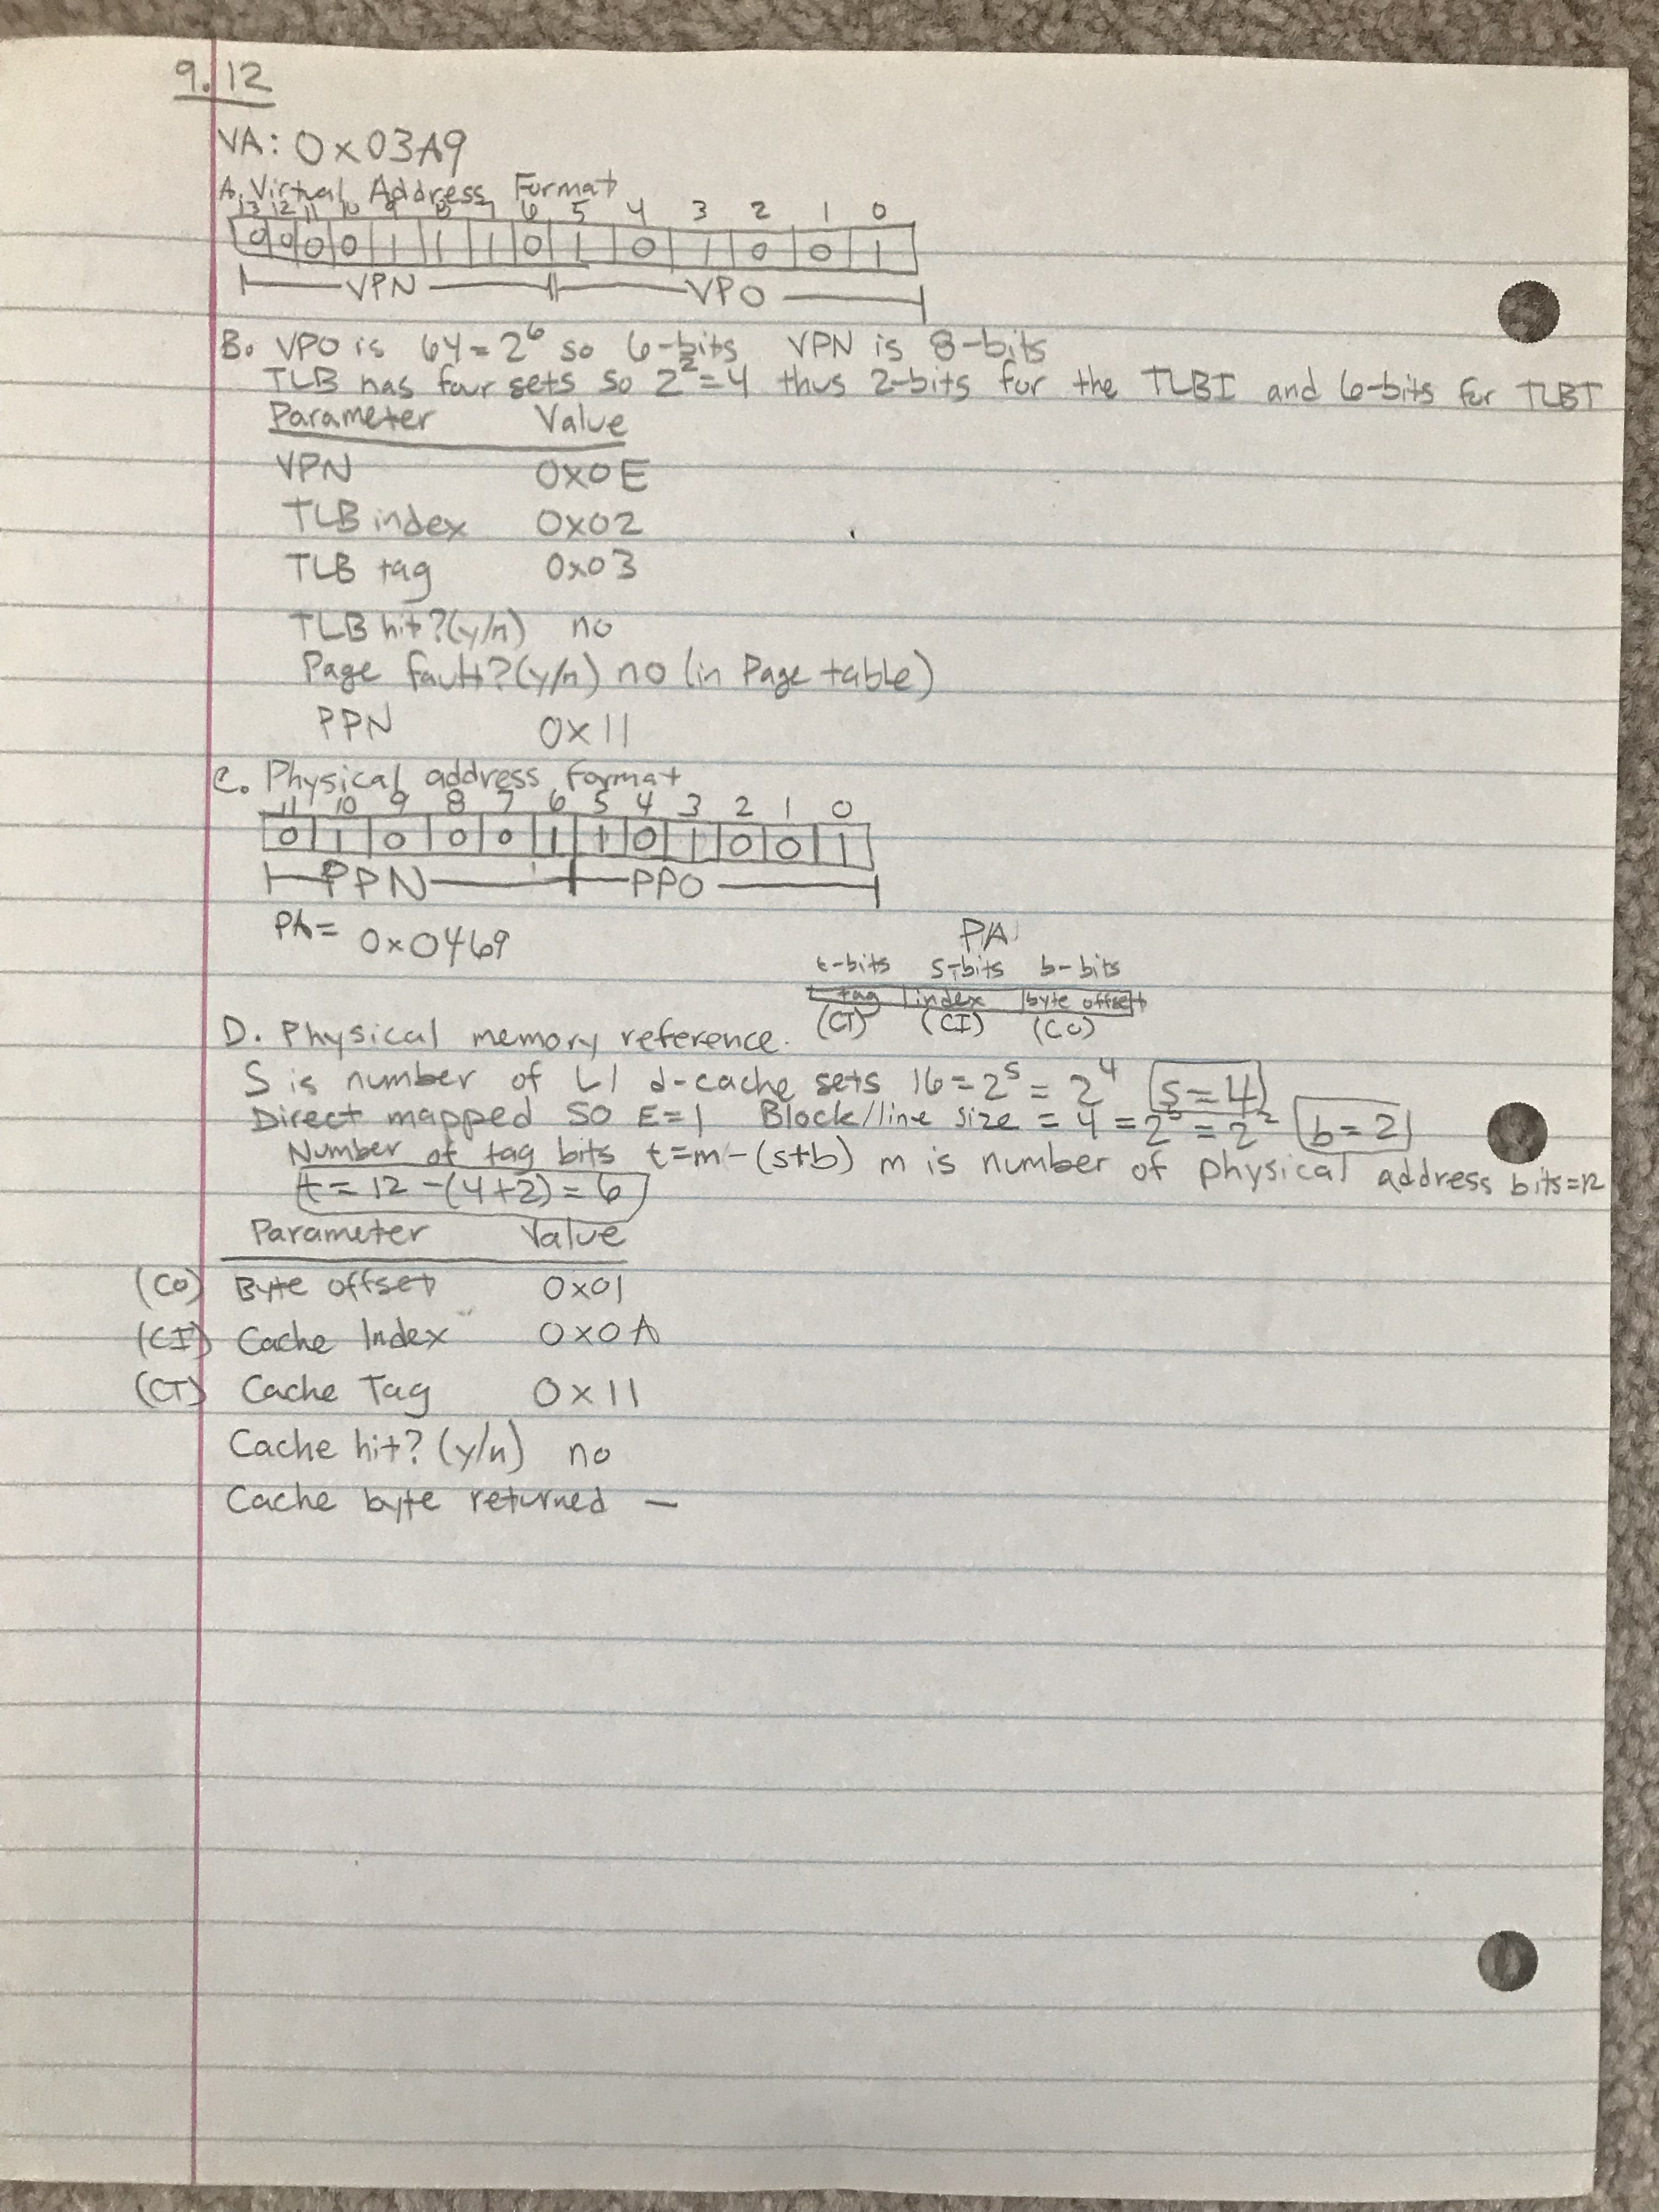 9.12
VA: 0x03A9
A. Virtual Address Format
13 12 11 10 9 8 7 6 5 4 3 2 1 0
0 0 0 0 1 1 1 0 1 0 1 0 0 1
VPN VPO
B. VPO is 64 = 2^6 so 6-bits VPN is 8-bits
TLB has four sets so 2^2 = 4 thus 2-bits for the TLBI and 6-bits for TLBT
Parameter Value
VPN 0x0E
TLB index 0x02
TLB tag 0x03
TLB hit? (y/n) no
Page fault? (y/n) no (in Page table)
PPN 0x11
C. Physical address format
11 10 9 8 7 6 5 4 3 2 1 0
0 1 0 0 0 1 1 0 1 0 0 1
PPN PPO
PA = 0x0469
PA
t-bits s-bits b-bits
tag index byte offset
(CT) (CI) (CO)
D. Physical memory reference.
S is number of L1 d-cache sets 16 = 2^s = 2^4 s = 4
Direct mapped so E=1 Block/line size = 4 = 2^b = 2^2 b = 2
Number of tag bits t=m-(s+b) m is number of physical address bits=12
t = 12 - (4+2) = 6
Parameter Value
(CO) Byte offset 0x01
(CI) Cache Index 0x0A
(CT) Cache Tag 0x11
Cache hit? (y/n) no
Cache byte returned —